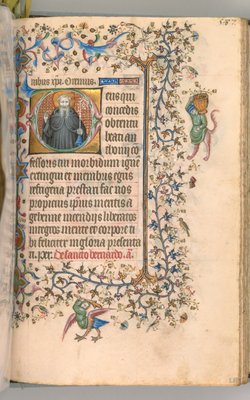 nibus xpi. Oremus.
eus qui
concedis
obtentu
beati an
thonij co
fessoris tui morbidum igne
extingui et membris egris
refrigeria prestari fac nos
propicius ipius meritis a
gehenne incendijs liberatos
integros mente et corpore ti
bi feliciter in gloria presenta
ri. per. De sancto bernardo. a.